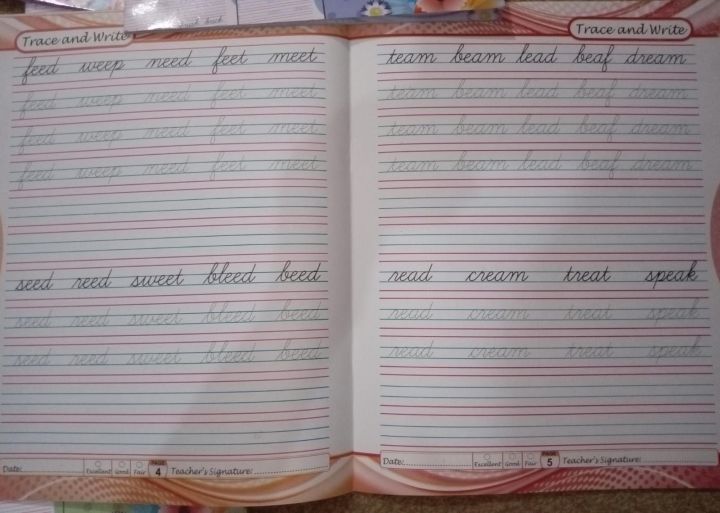 Trace and Write
feed weep need feet meet
feed weep need feet meet
feed weep need feet meet
feed weep need feet meet
seed reed sweet bleed beed
seed reed sweet bleed beed
seed reed sweet bleed beed
Date: Excellent Good Fair PAGE 4 Teacher's Signature:
Trace and Write
team beam lead beaf dream
team beam lead beaf dream
team beam lead beaf dream
team beam lead beaf dream
read cream treat speak
read cream treat speak
read cream treat speak
Date: Excellent Good Fair PAGE 5 Teacher's Signature: